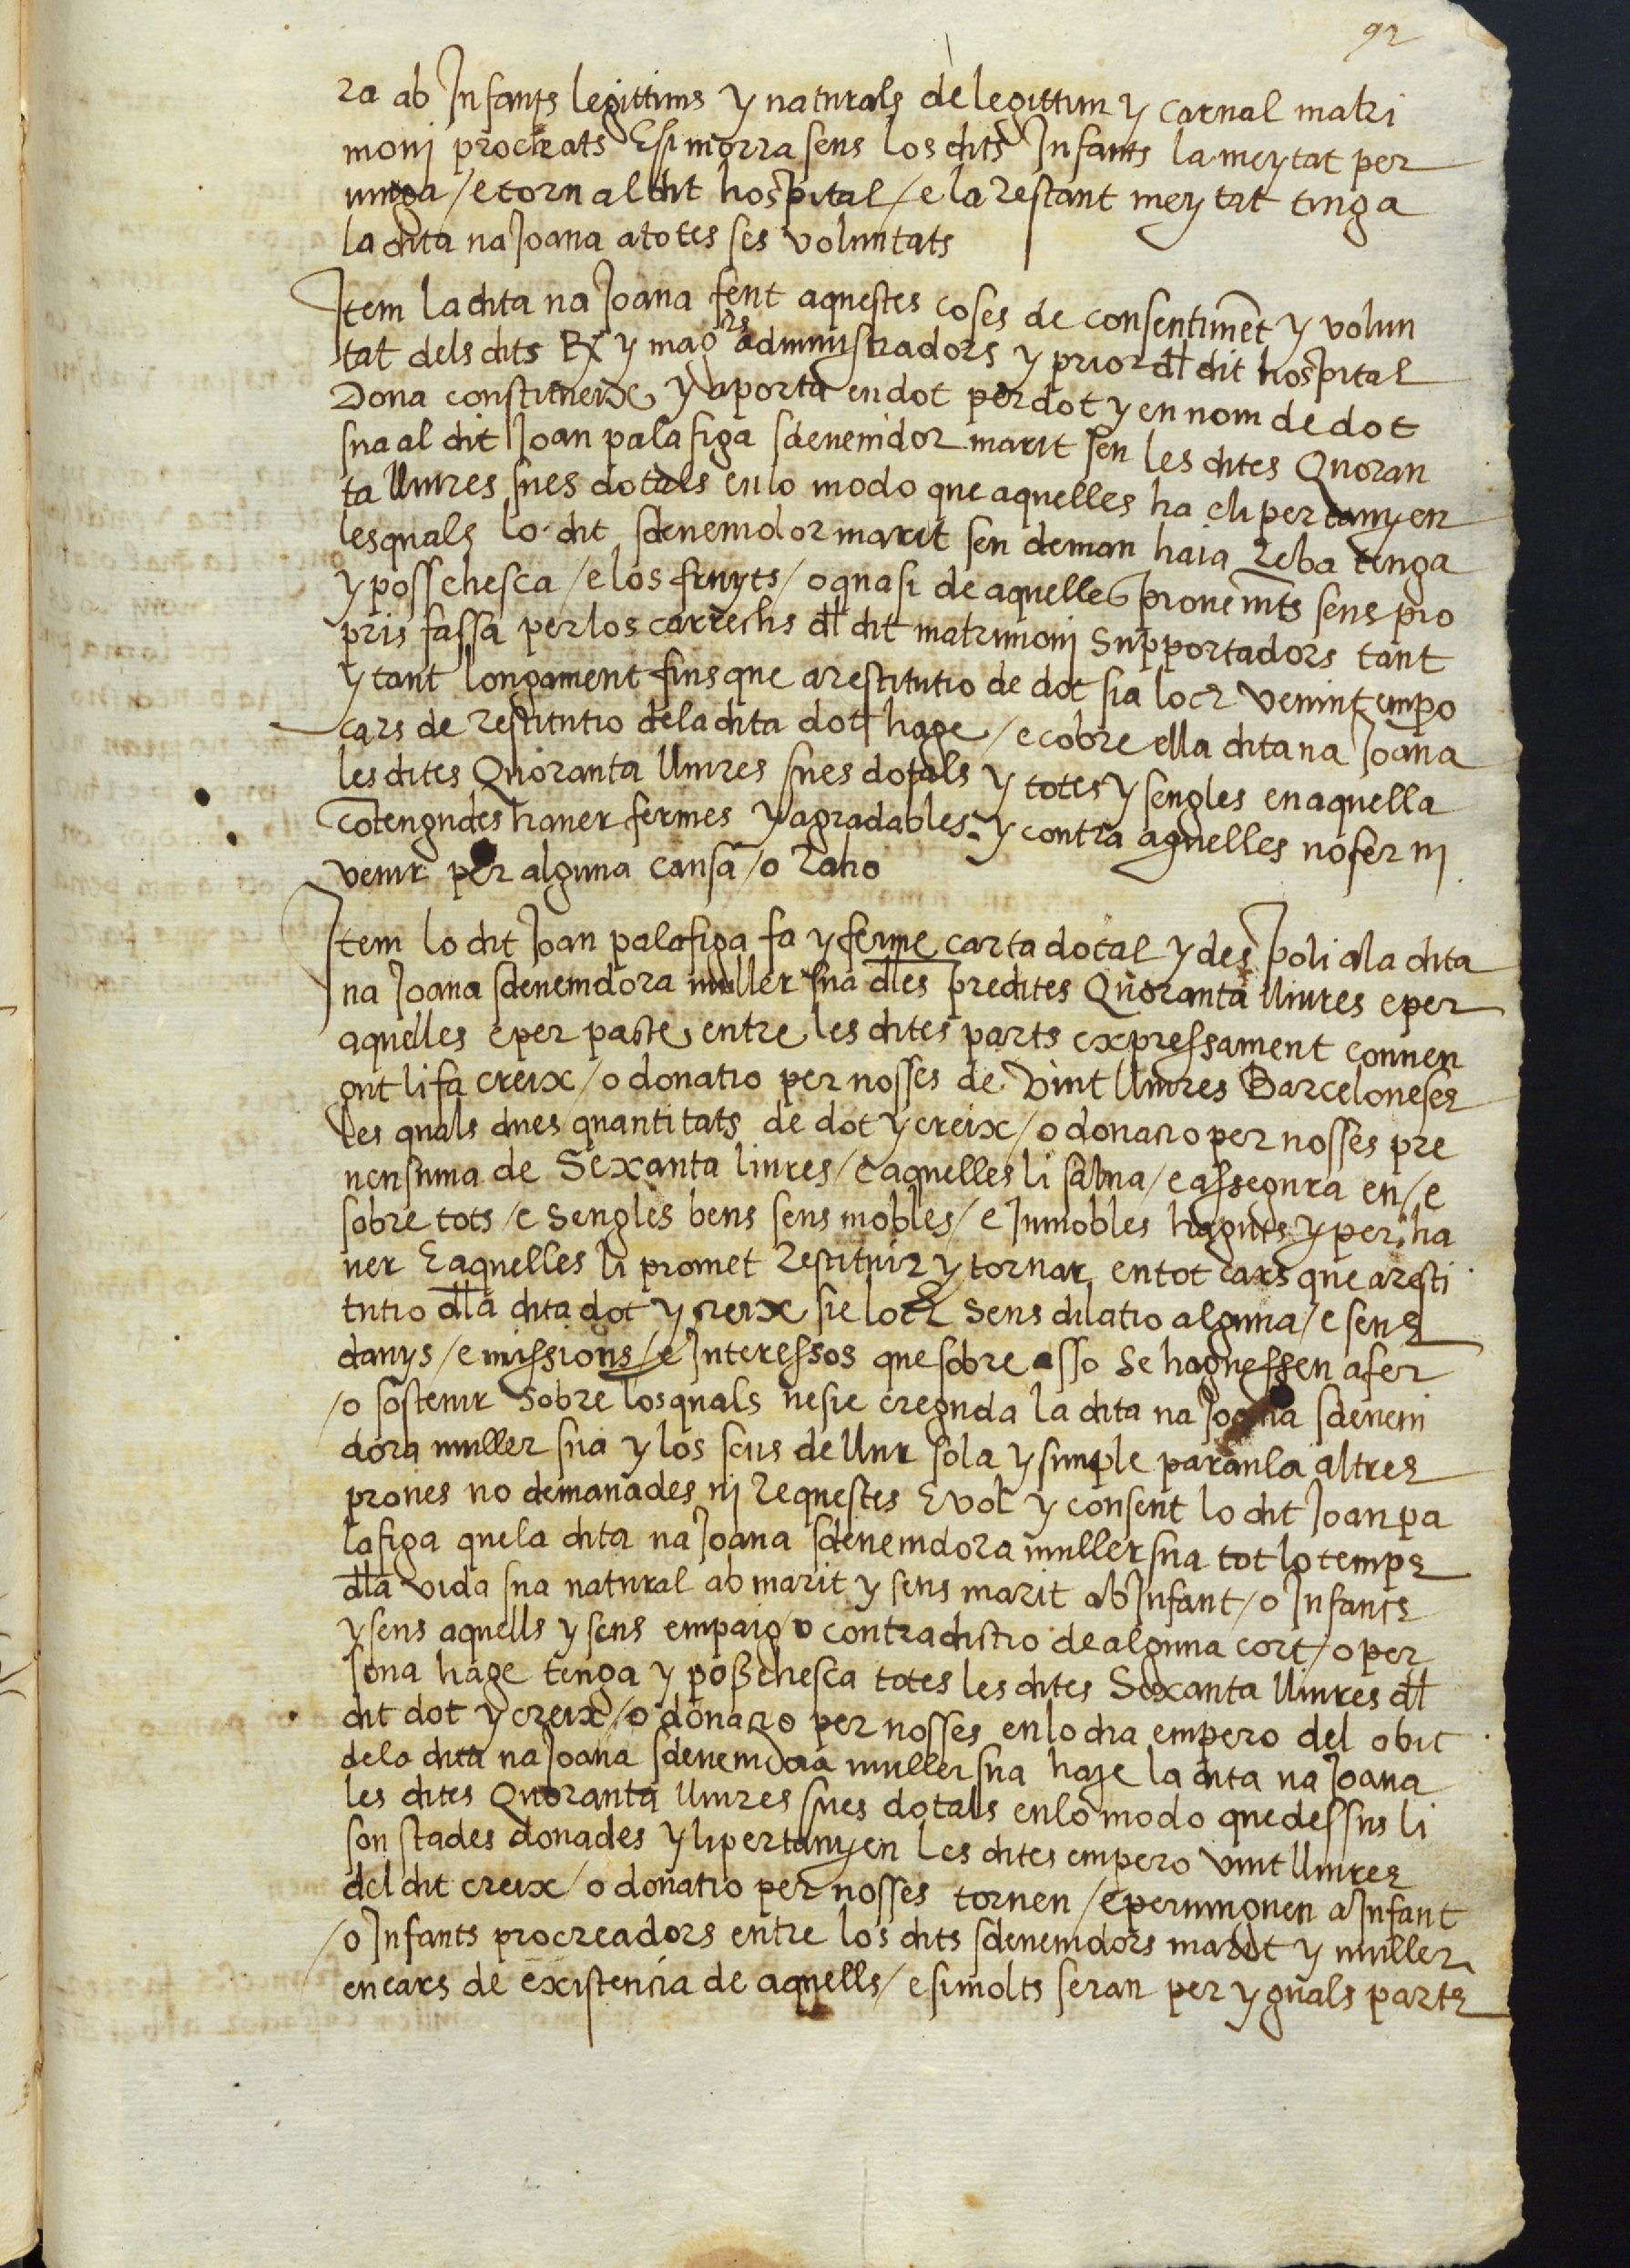 92
ra ab Infants legittims y naturals de legittim y carnal matri
monj procreats E si morra sens los dits Infants la meytat per
uinga / e torn al dit hospital / e la restant meytat tinga
la dita na Joana a totes ses voluntats
Item la dita na Joana fent aquestes coses de consentimēt y volun
tat dels dits Rx y mag.rs administradors y prior dl dit hospital
Dona constitueix y aporta en dot per dot y en nom de dot
sua al dit Joan palafiga sdeuenidor marit seu les dites Quoran
ta lliures sues dotals en lo modo que aquelles ha e li pertanyen
les quals lo dit sdeuenidor marit seu deman haia reba tinga
y possehesca / e los fruyts / o quasi de aquelles prouenīts seus pro
pris fassa per los carrechs dl dit matrimonj supportadors tant
y tant longament fins que a restitutio de dot sia locr venint empo
cars de restitutio dela dita dot hage / e cobre ella dita na Joana
les dites Quoranta lliures sues dotals y totes y sengles en aquella
cōtengudes hauer fermes y agradables y contra aquelles no fer nj
venir per alguna causa / o raho
Item lo dit Joan palafiga fa y ferme carta dotal y de spoli ala dita
na Joana sdeuenidora muller sua dles predites Quoranta lliures e per
aquelles e per pacte entre les dites parts expressament conuen
gut li fa creix / o donatio per nosses de vint lliures Barceloneses
les quals dues quantitats de dot y creix / o donacio per nosses pre
nen suma de Sexanta liures / e aquelles li salua / e assegura en / e
sobre tots / e sengles bens seus mobles / e Inmobles haguts y per ha
uer E aquelles li promet restituir y tornar en tot cars que a resti
tutio dla dita dot y creix sie locr sens dilatio alguna / e sens
danys / e missions / e Interessos que sobre asso se haguessen a fer
/ o sostenir sobre los quals ne sie creguda la dita na Joana sdeueni
dora muller sua y los seus de llur sola y simple paraula altres
proues no demanades nj requestes E vol y consent lo dit Joan pa
lafiga que la dita na Joana sdeuenidora muller sua tot lo temps
dla vida sua natural ab marit y sens marit ab Infant / o Infants
y sens aquells y sens empaig o contradictio de alguna cort / o per
sona hage tenga y poßehesca totes les dites Sexanta lliures dl
dit dot y creix / o donacio per nosses en lo dia empero del obit
dela dita na Joana sdeuenidora muller sua haje la dita na Joana
les dites Quoranta lliures sues dotals en lo modo que dessus li
son stades donades y li pertanyen les dites empero vint lliures
del dit creix / o donatio per nosses tornen / e peruinguen a Infant
/ o Infants procreadors entre los dits sdeuenidors marit y muller
en cars de existencia de aquells / e si molts seran per yguals parts